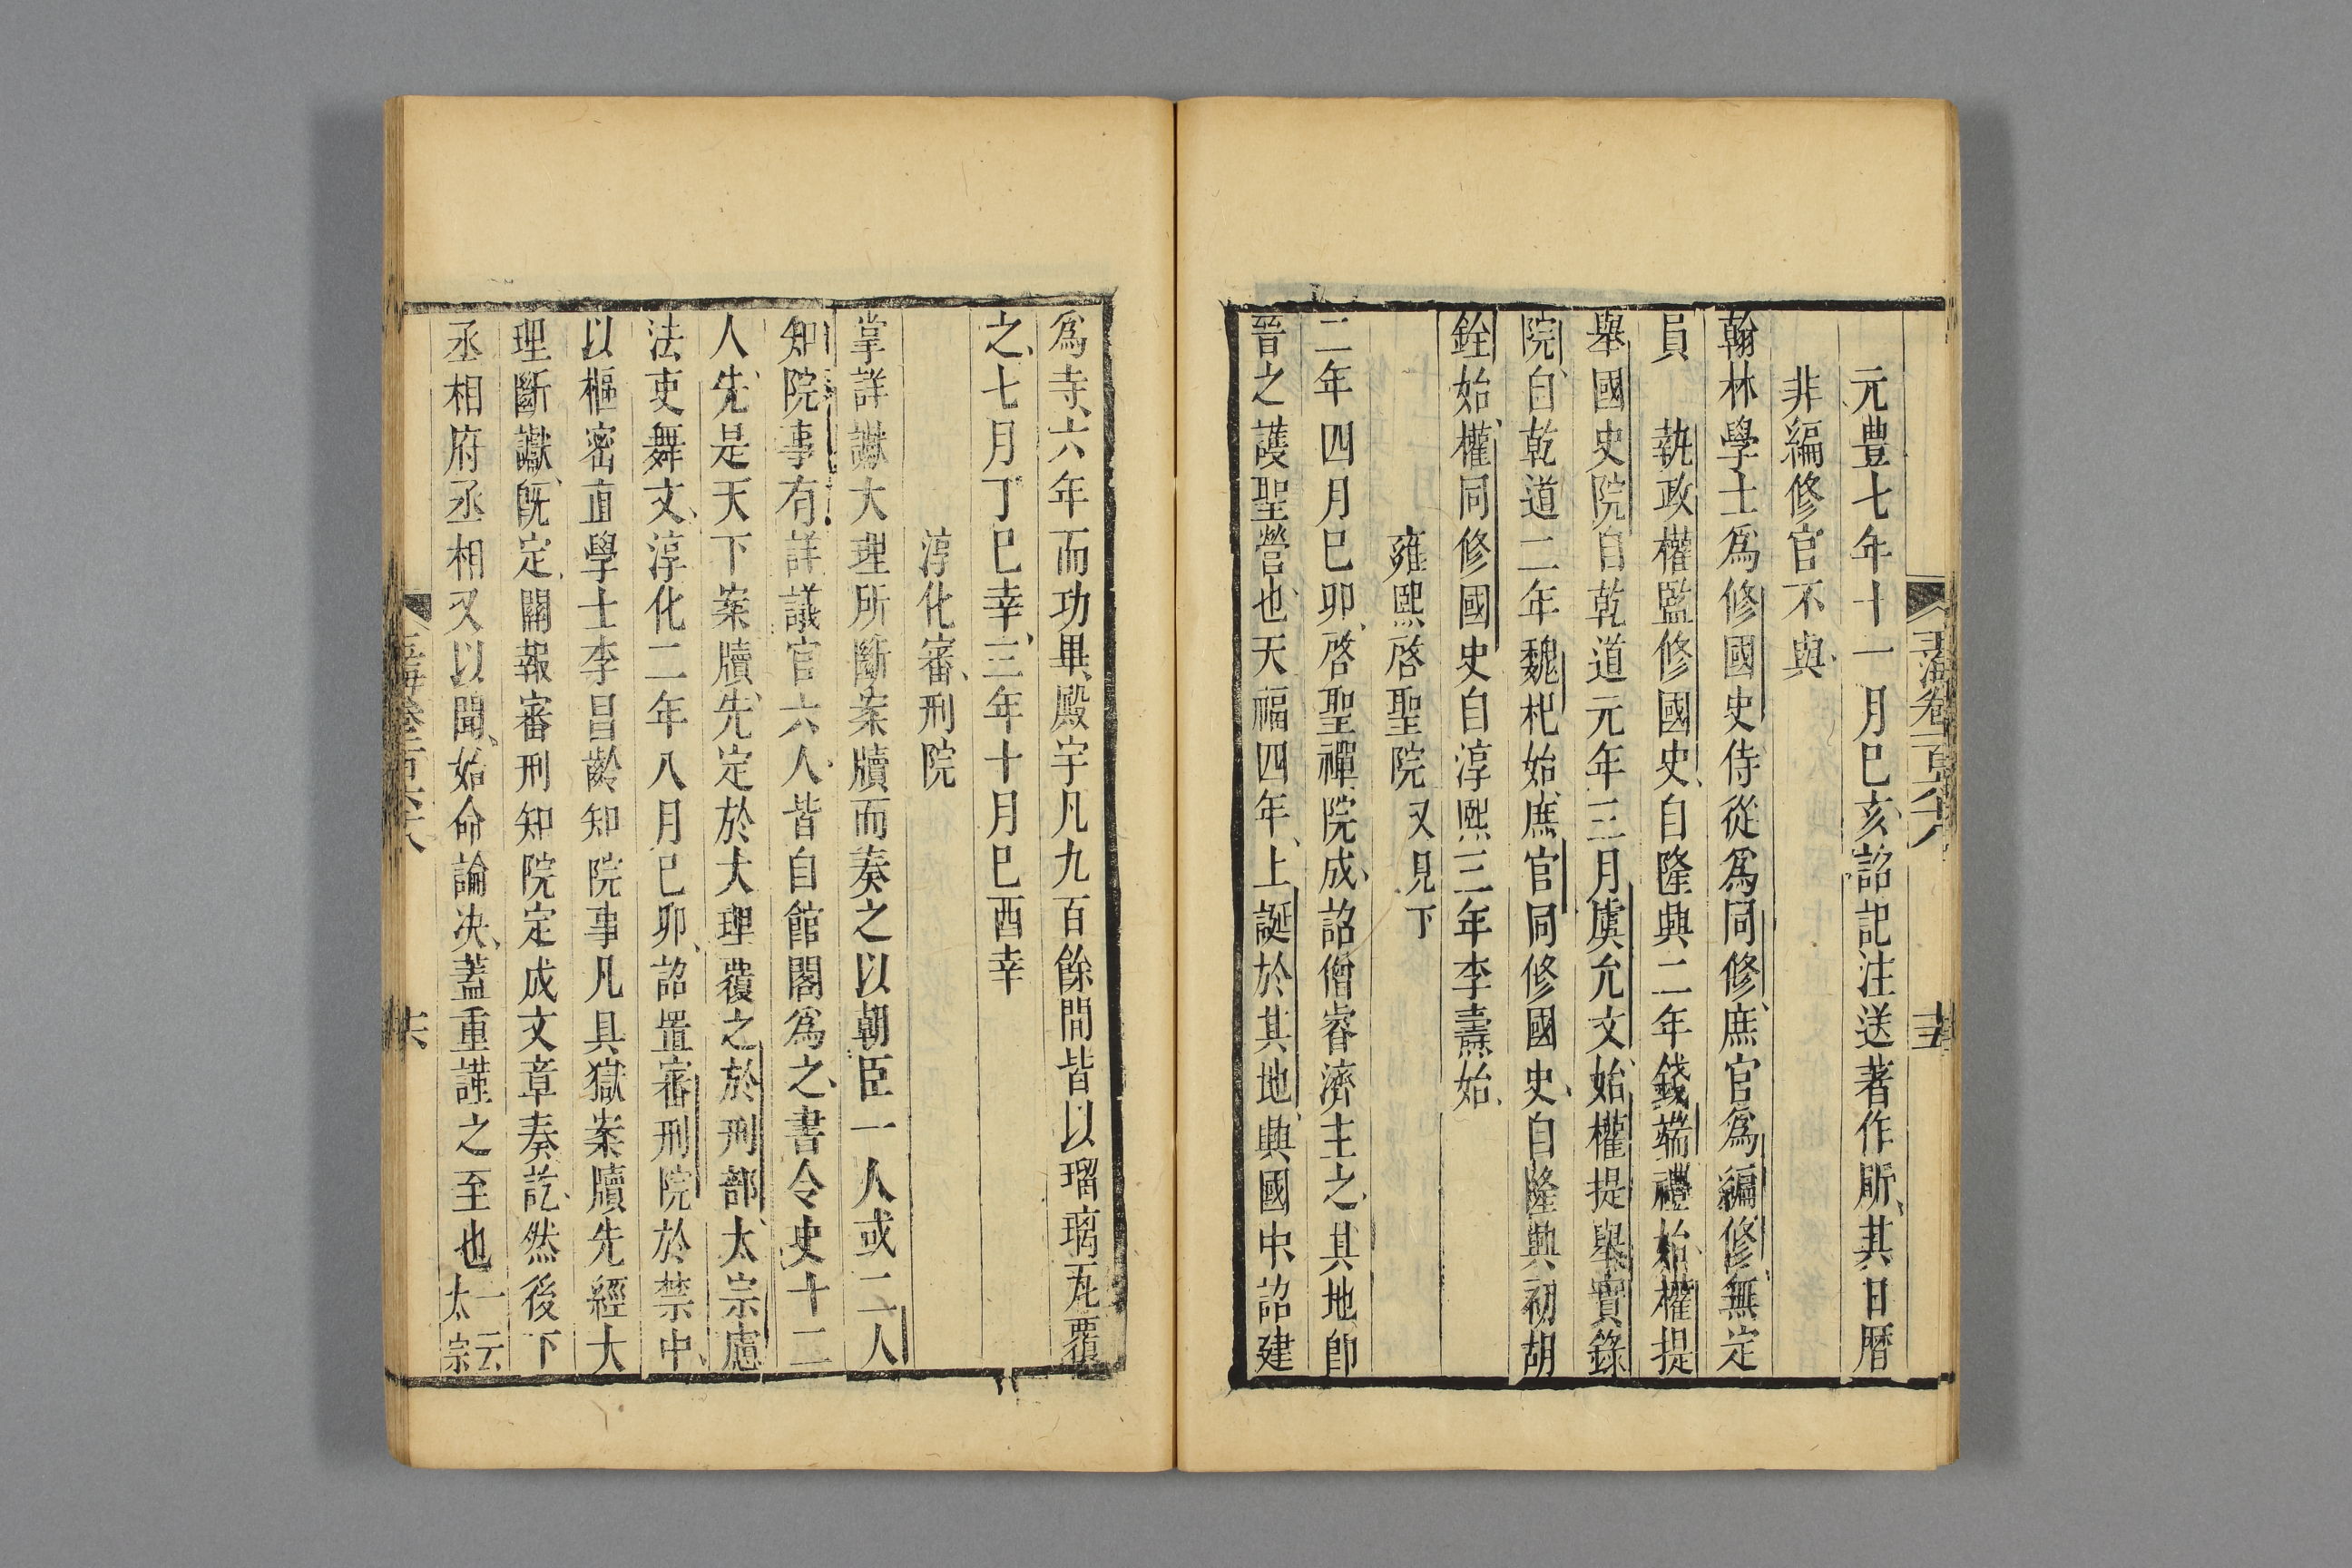 元豊七年十一月巳亥詔記注送著作所其日曆
非編修官不與
翰林學士爲修國史侍從爲同修庶官爲編修無定
員　執政權監修國史自隆興二年錢端禮始權提
舉國史院自乾道元年三月虞允文始權提舉實錄
院自乾道二年魏杞始庶官同修國史自隆興初胡
銓始權同修國史自淳熙三年李燾始
雍熙啓聖院又見下
二年四月巳卯啓聖禪院成詔僧睿濟主之其地卽
晉之護聖營也天福四年上誕於其地興國中詔建
爲寺六年而功畢殿宇凡九百餘間皆以瑠璃瓦覆
之七月丁巳幸三年十月巳酉幸
淳化審刑院
掌詳讞大理所斷案牘而奏之以朝臣一人或二人
知院事有詳議官六人皆自館閣爲之書令史十二
人先是天下案牘先定於大理覆之於刑部太宗慮
法吏舞文淳化二年八月巳卯詔置審刑院於禁中
以樞密直學士李昌齡知院事凡具獄案牘先經大
理斷讞旣定關報審刑知院定成文章奏訖然後下
丞相府丞相又以聞始命論决蓋重謹之至也一云
太宗